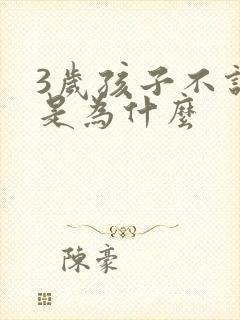 3歲孩子不
是為什麼
陳豪